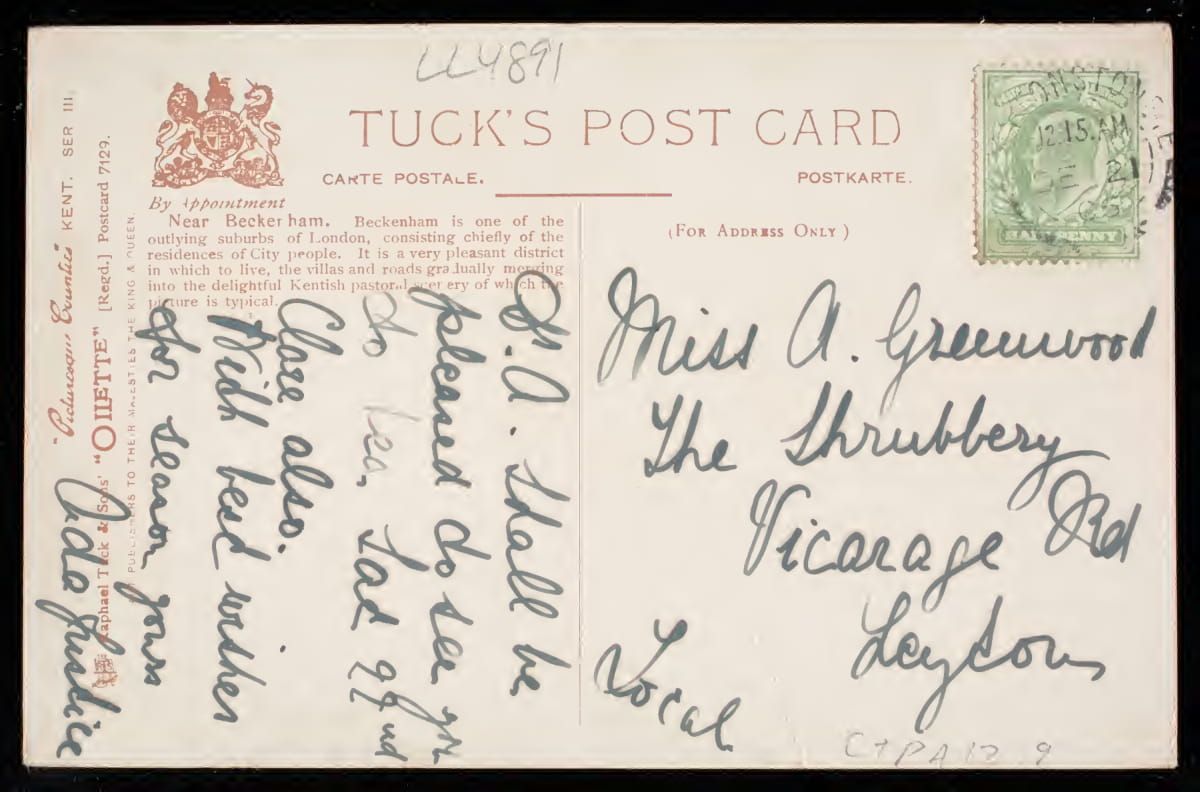 LL4891
TUCK'S POST CARD
CARTE POSTALE.
POSTKARTE.
By Appointment
(FOR ADDRESS ONLY)
Near Beckenham. Beckenham is one of the
outlying suburbs of London, consisting chiefly of the
residences of City people. It is a very pleasant district
in which to live, the villas and roads gradually merging
into the delightful Kentish pastoral scenery of which the
picture is typical.
"Picturesque Counties" KENT. SER III.
Raphael Tuck & Sons' "OILETTE" [Regd.] Postcard 7129.
PUBLISHERS TO THEIR MAJESTIES THE KING & QUEEN.
D. A. Shall be
pleased to see you
to tea, Sat
Clare also.
With best wishes
for season yours
Ada Justice
Miss A. Greenwood
The Shrubbery
Vicarage Rd
Leyton
Local
12.15.AM
DE 21
HALFPENNY